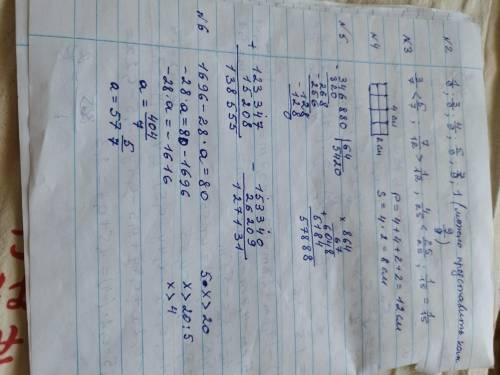 №2
1/9; 3/9; 4/9; 5/9; 8/9; 1 (можно представить как 9/9)
№3
3/7 < 5/7; 7/12 > 1/12; 4/25 < 25/25; 1/15 = 1/15
№4
4 см
2 см
P = 4+4+2+2 = 12 см
S = 4·2 = 8 см
№5
346880 | 64
- 320 5420
268
- 256
128
- 128
0
× 864
67
+ 6048
5184
57888
+ 123347
15208
138555
- 153340
26209
127131
№6
1696-28·a=80
-28·a=80-1696
-28·a=-1616
a = 404/7
a = 57 5/7
5•x>20
x>20:5
x>4